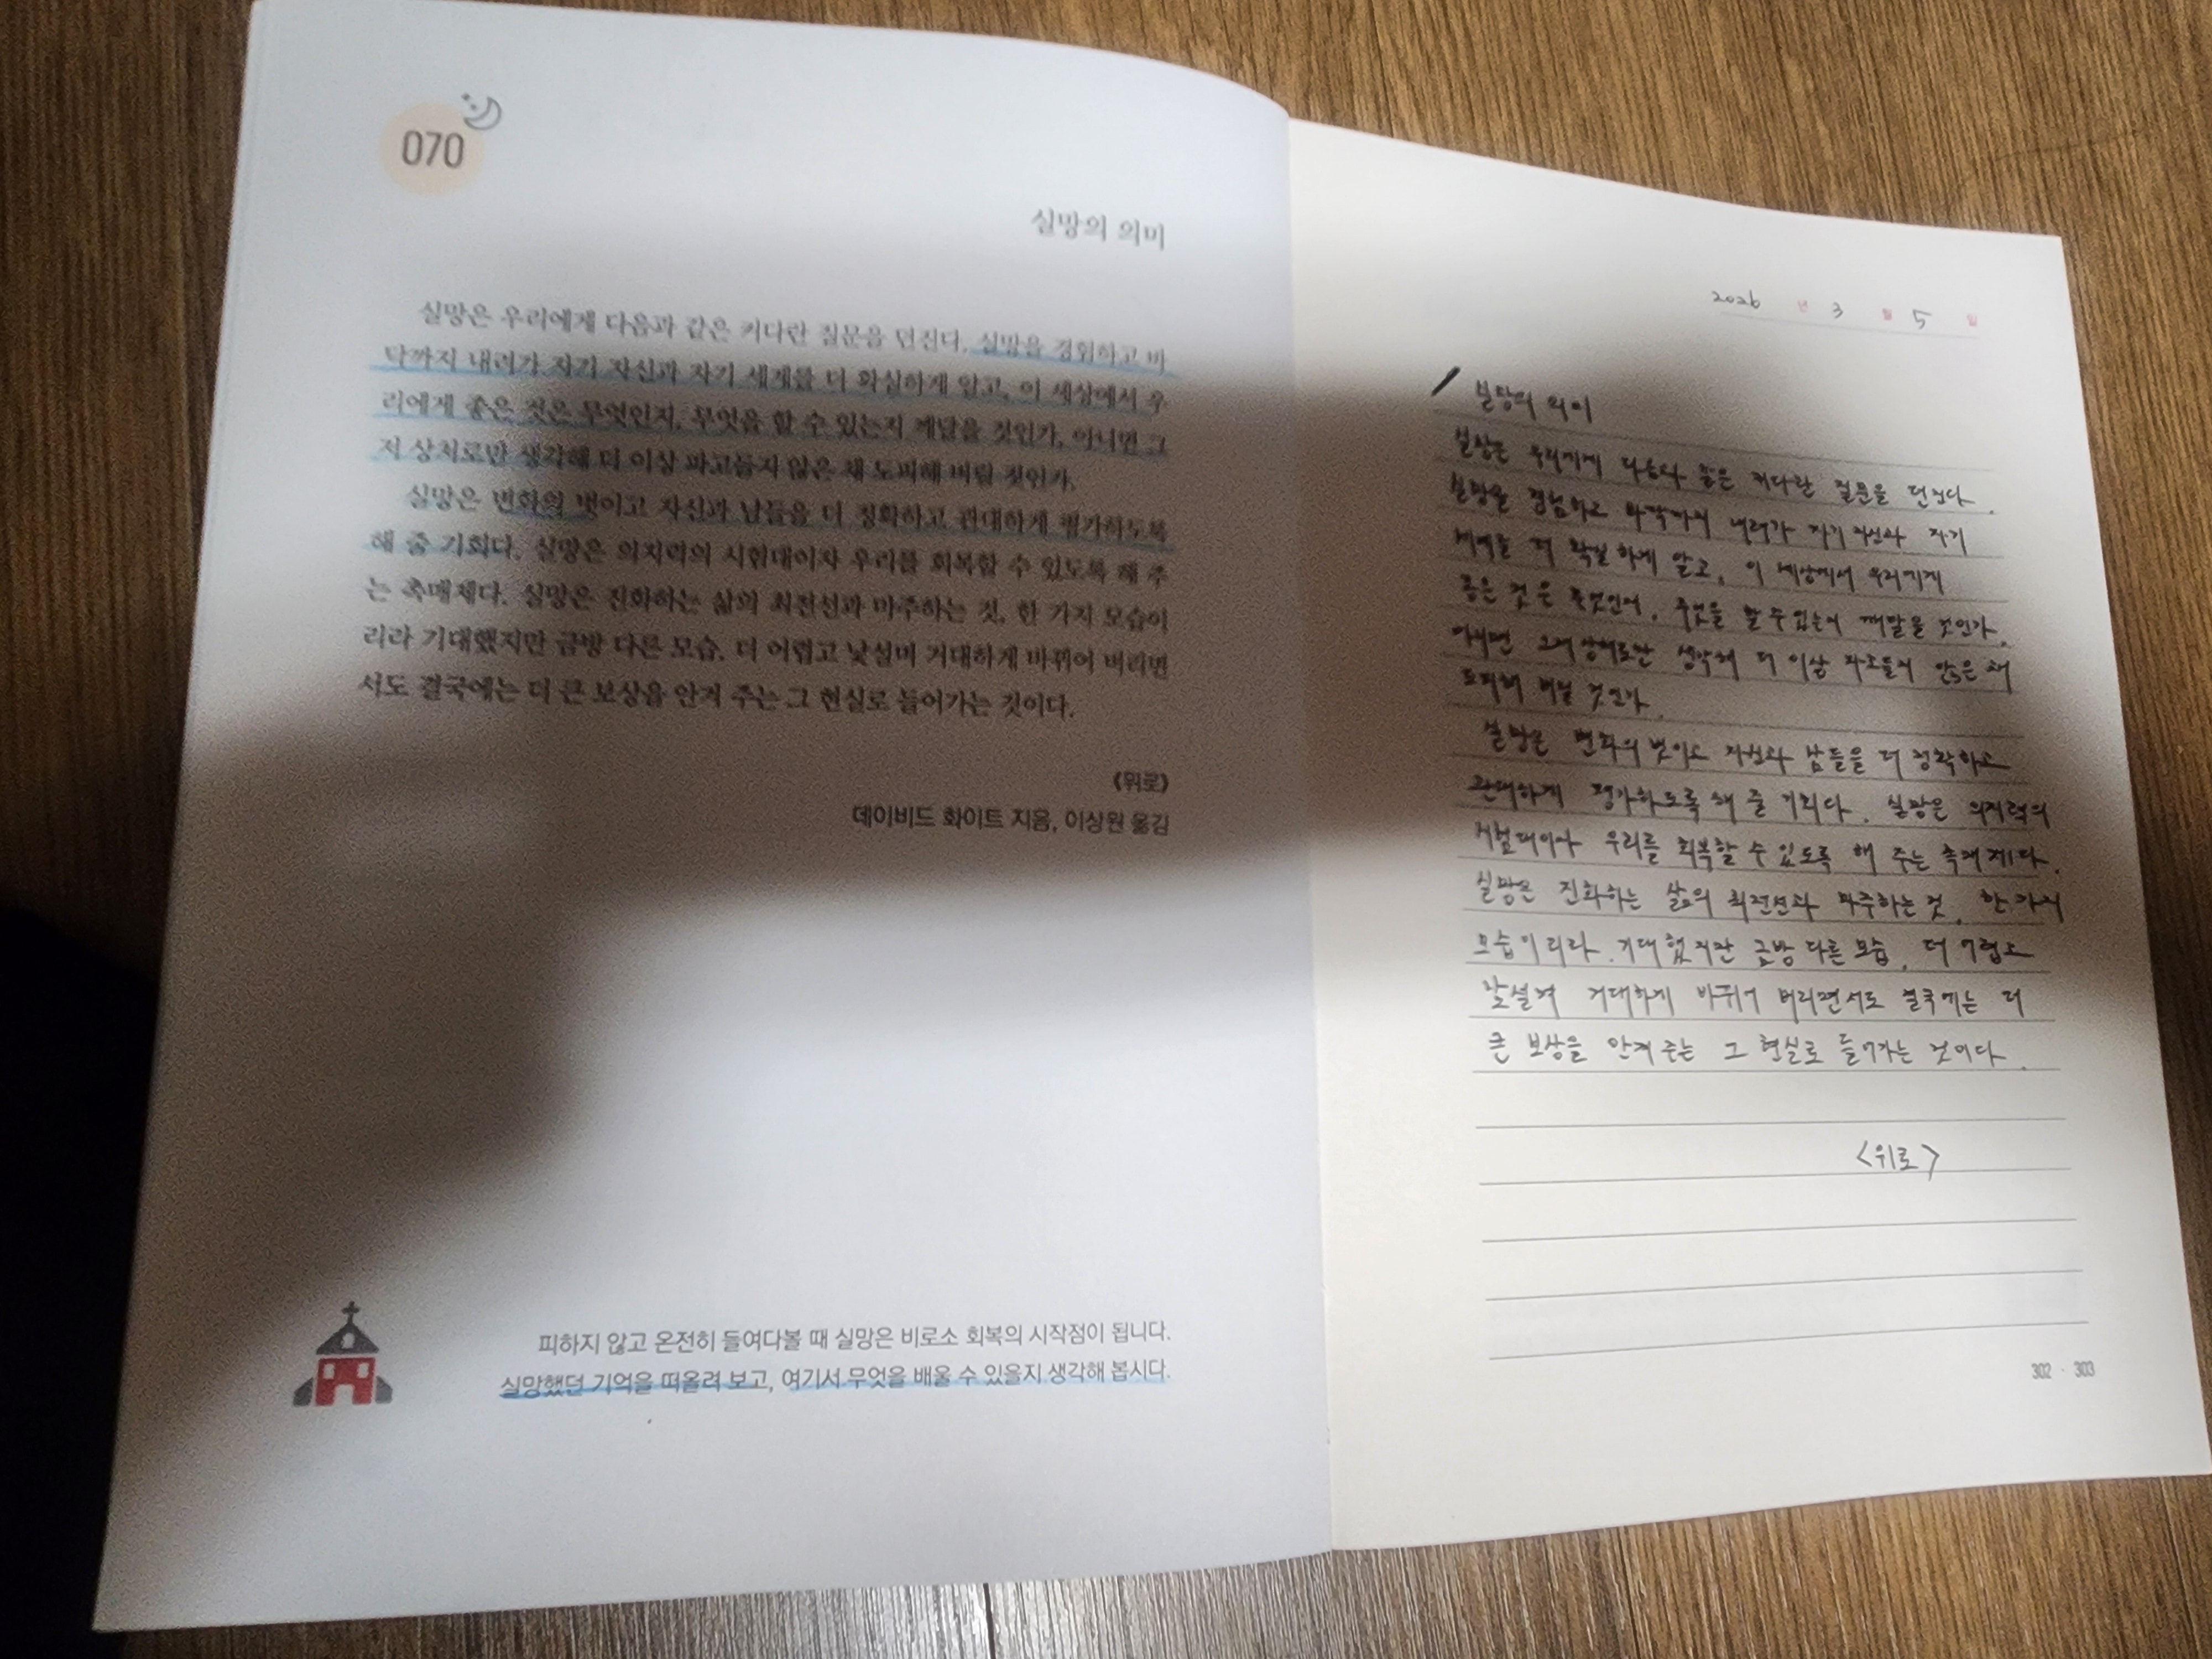 070
실망의 의미
실망은 우리에게 다음과 같은 커다란 질문을 던진다. 실망을 경험하고 바
닥까지 내려가 자기 자신과 자기 세계를 더 확실하게 알고, 이 세상에서 우
리에게 좋은 것은 무엇인지, 무엇을 할 수 있는지 깨달을 것인가, 아니면 그
저 상처로만 생각해 더 이상 파고들지 않은 채 도피해 버릴 것인가.
실망은 변화의 벗이고 자신과 남들을 더 정확하고 관대하게 평가하도록
해 줄 기회다. 실망은 의지력의 시험대이자 우리를 회복할 수 있도록 해 주
는 촉매제다. 실망은 진화하는 삶의 최전선과 마주하는 것, 한 가지 모습이
리라 기대했지만 금방 다른 모습, 더 어렵고 낯설며 거대하게 바뀌어 버리면
서도 결국에는 더 큰 보상을 안겨 주는 그 현실로 들어가는 것이다.
《위로》
데이비드 화이트 지음, 이상원 옮김
피하지 않고 온전히 들여다볼 때 실망은 비로소 회복의 시작점이 됩니다.
실망했던 기억을 떠올려 보고, 여기서 무엇을 배울 수 있을지 생각해 봅시다.
2026 년 3 월 5 일
실망의 의미
우리에게 다음과 같은 커다란 질문을 던진다.
실망을 경험하고 바닥까지 내려가 자기 자신과 자기
세계를 더 확실하게 알고, 이 세상에서 우리에게
좋은 것은 무엇인지, 무엇을 할 수 있는지 깨달을 것인가,
아니면 그저 상처로만 생각해 더 이상 파고들지 않은 채
도피해 버릴 것인가.
실망은 변화의 벗이고 자신과 남들을 더 정확하고
관대하게 평가하도록 해 줄 기회다. 실망은 의지력의
시험대이자 우리를 회복할 수 있도록 해 주는 촉매제다.
실망은 진화하는 삶의 최전선과 마주하는 것, 한 가지
모습이리라 기대했지만 금방 다른 모습, 더 어렵고
낯설며 거대하게 바뀌어 버리면서도 결국에는 더
큰 보상을 안겨 주는 그 현실로 들어가는 것이다.
<위로>
302 · 303